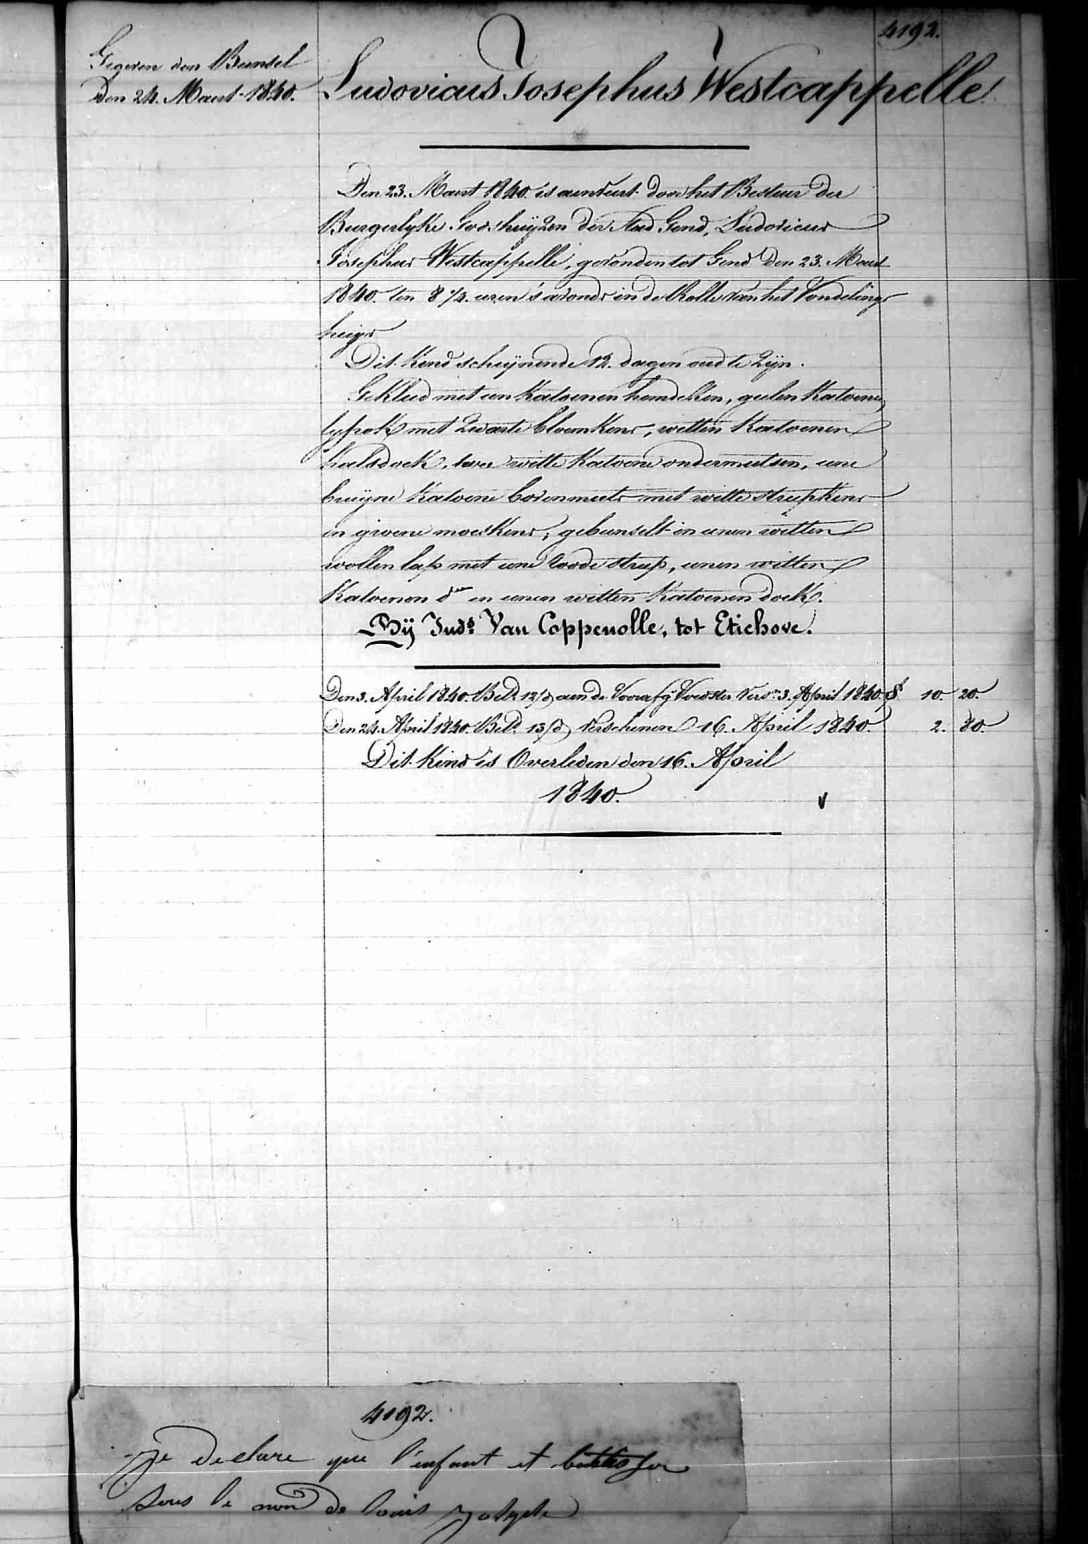 4192.
Gegeven den Bunsel
Den 24. Maert 1840.
Ludovicus Josephus Westcappelle
Den 23. Maert 1840. is aenveert door het Bestuer der
Burgerlyke Godshuijzen der stad Gend, Ludovicus
Josephus Westcappelle, gevonden tot Gend den 23. Maert
1840. ten 8 1/2. uren 's avonds in de Rolle van het Vondeling-
huijs
Dit Kind scheijnende 12. dagen oud te zijn.
Gekleed met een Katoenen hemdeken, geelen Katoene
lyfrok met zwarte bloemkens, witten Katoenen
halsdoek, twee witte Katoene ondermutsen, eene
bruijne Katoene bovenmuts met witte streepkens
en groene moeskens, gebunselt in eenen witten
wollen lap met eene roode streep, eenen witten
Katoenen d.en en eenen witten Katoenen doek.
Bij Jud.s Van Coppenolle, tot Etichove.
Den 3. April 1840. Bet.d 12/d aen de Voorafg. Voedster Vers.n 3. April 1840. 10. 20.
Den 24. April 1840. Bet.d 13/d Verschenen 16. April 1840. 2. 80.
Dit Kind is Overleden den 16. April
1840.
4192.
je declare que l'enfant et
sous le nom de louis